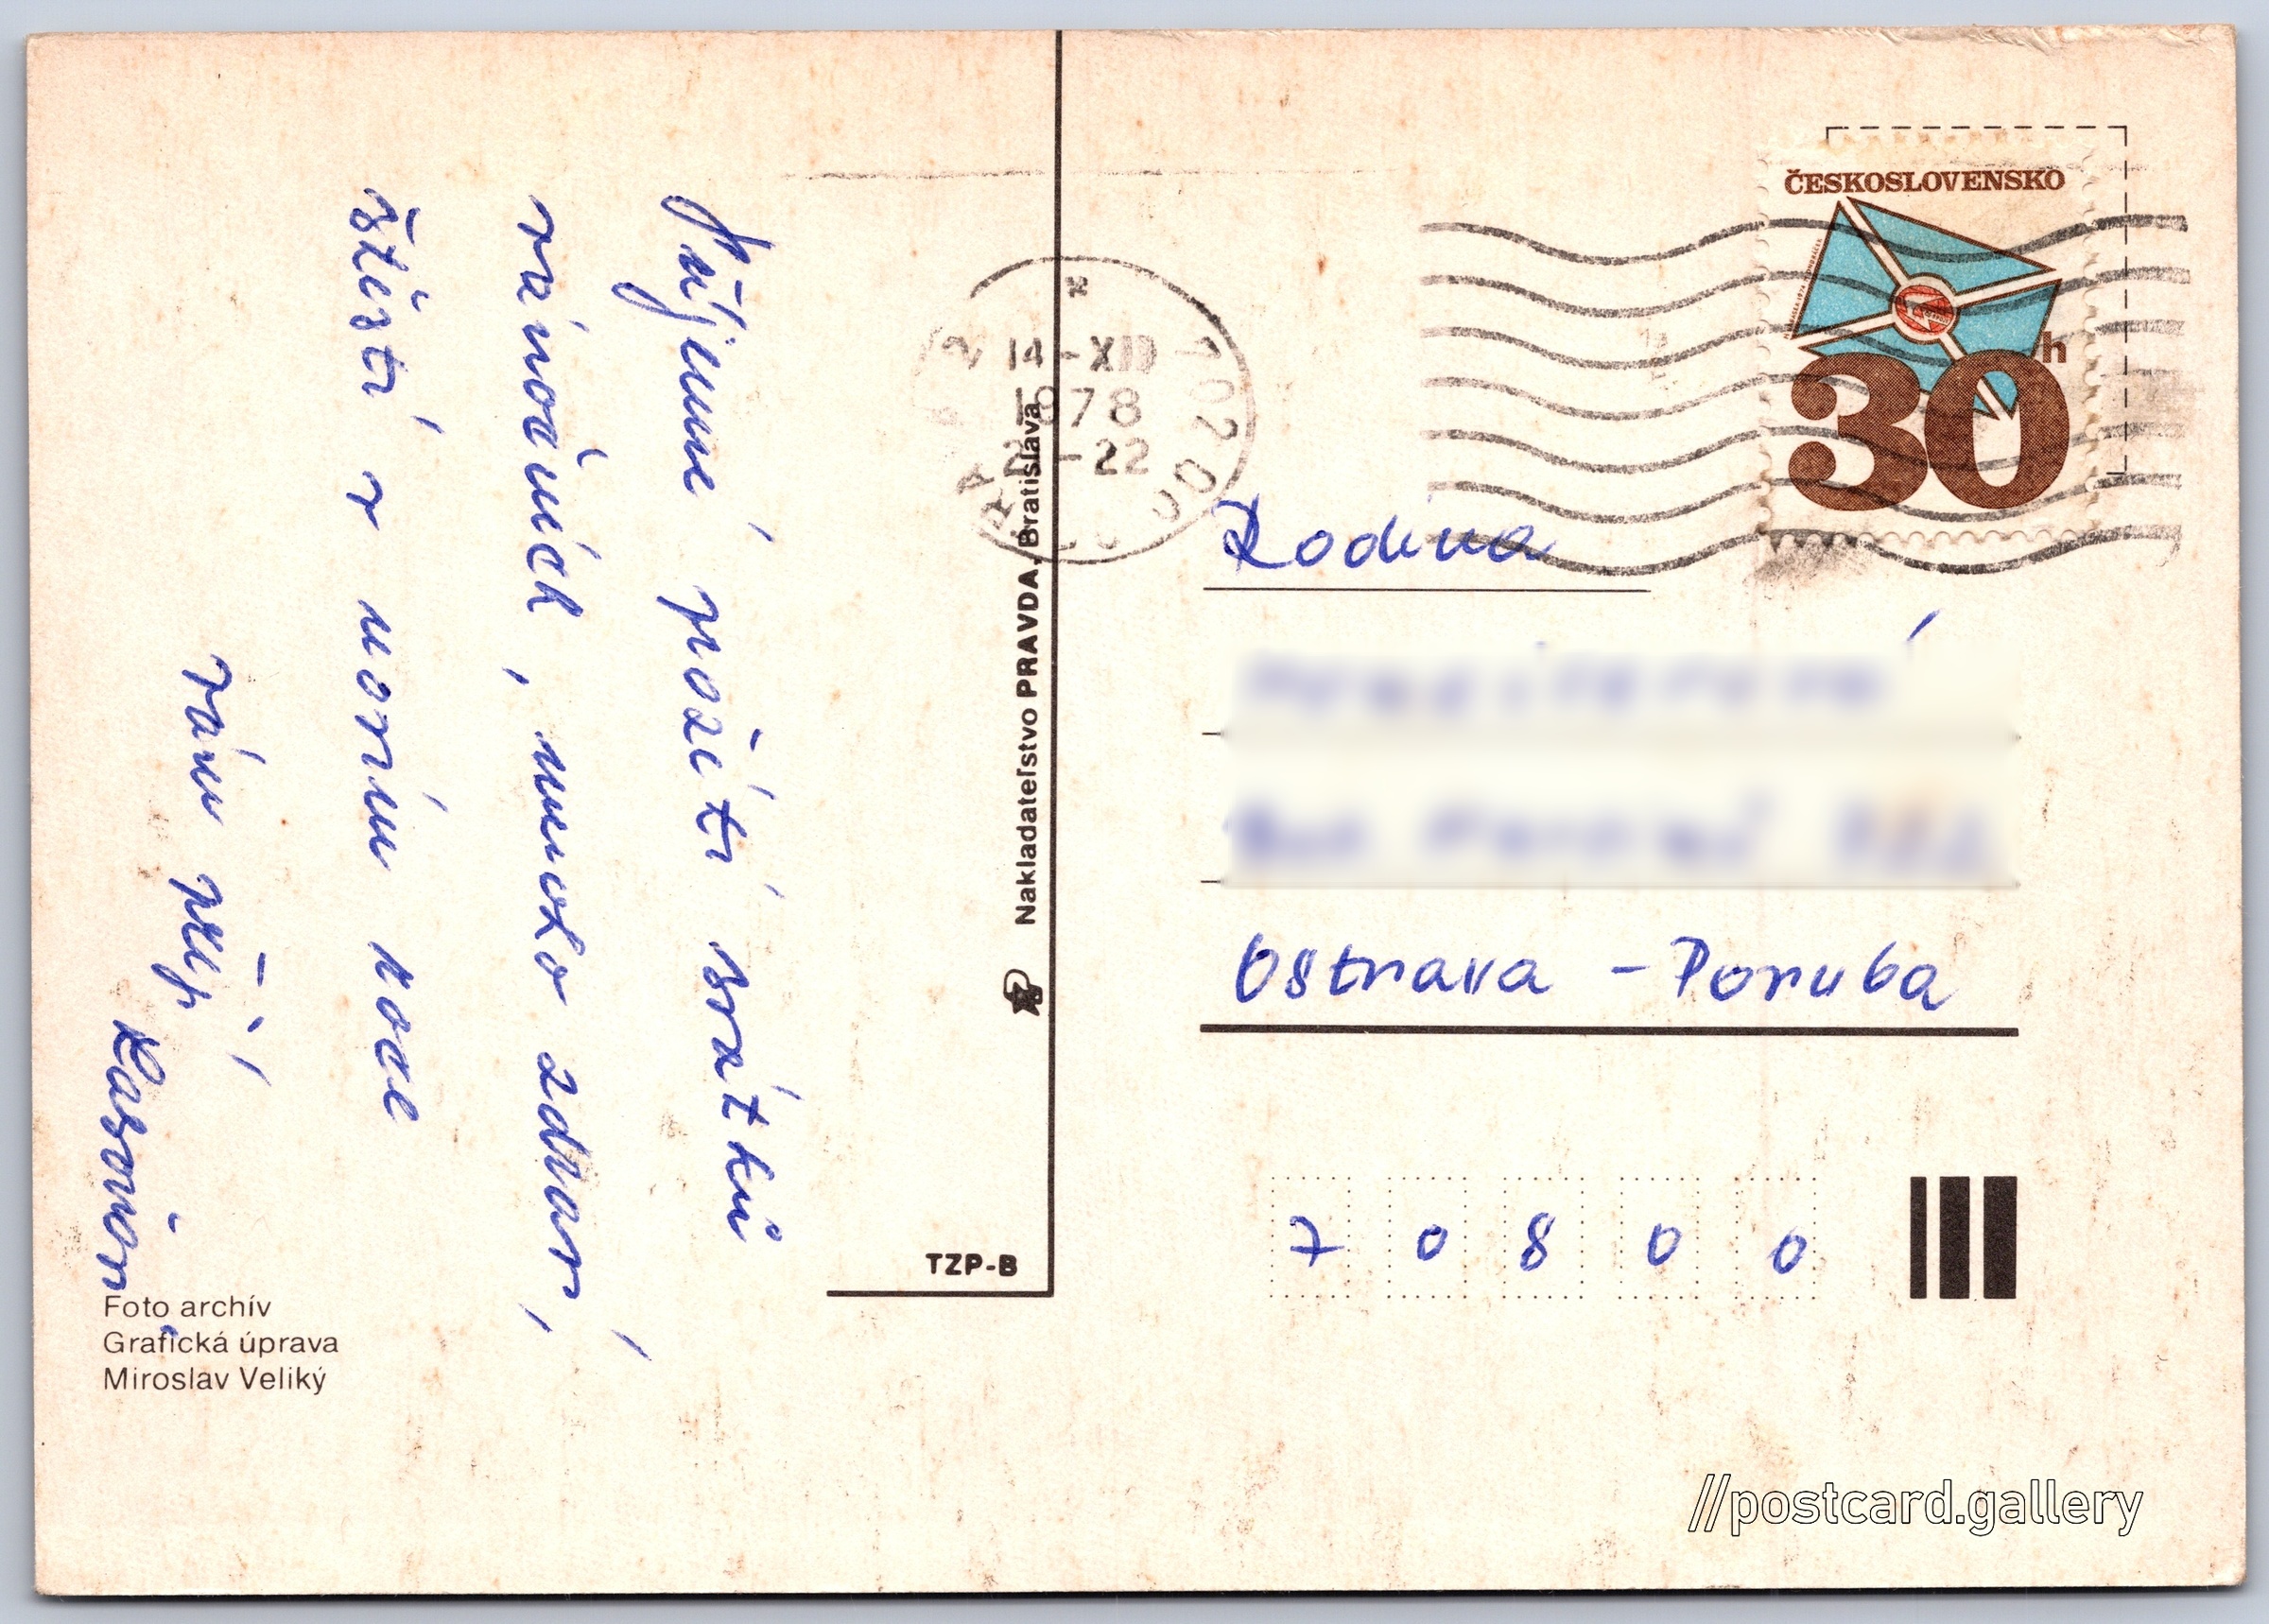 Příjemné prožití svátků
vánočních, mnoho zdraví,
štěstí v novém roce
Vám přejí
Nakladateľstvo PRAVDA, Bratislava
TZP-B
Foto archív
Grafická úprava
Miroslav Veliký
ČESKOSLOVENSKO
30 h
14-XII
1978
-22
702 00
Rodina
Ostrava - Poruba
7 0 8 0 0
//postcard.gallery